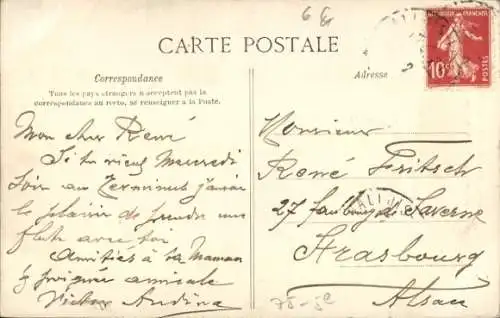 6 f
CARTE POSTALE
Correspondance
Tous les pays étrangers n'acceptent pas la
correspondance au recto, se renseigner à la Poste.
Adresse
REPUBLIQUE FRANÇAISE
10c
POSTES
Mon cher René
Si tu viens Mercredi
soir au Terminus j'aurai
le plaisir de prendre une
flute avec toi
Amitiés à ta Maman
& poignée amicale
Victor
Monsieur
René Fritsch
27 faubourg de Saverne
Strasbourg
Alsace
75-5e